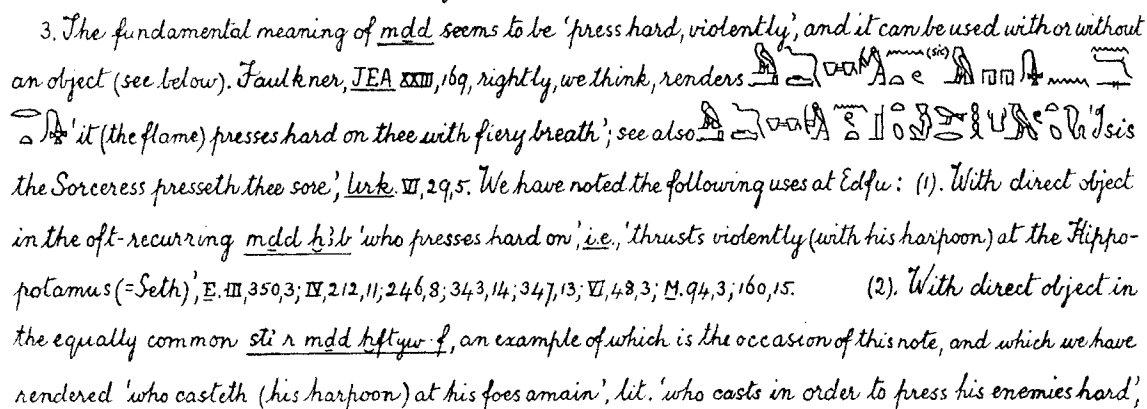 3. The fundamental meaning of mdd seems to be 'press hard, violently', and it can be used with or without
an object (see below). Faulkner, JEA XXIII, 169, rightly, we think, renders (sic)
'it (the flame) presses hard on thee with fiery breath'; see also 'Isis
the Sorceress presseth thee sore', Urk. VI, 29, 5. We have noted the following uses at Edfu: (1). With direct object
in the oft-recurring mdd ḫꜣb 'who presses hard on', i.e., 'thrusts violently (with his harpoon) at the Hippo-
potamus (=Seth)', E. III, 350, 3; IV, 212, 11; 246, 8; 343, 14; 347, 13; VI, 48, 3; M. 94, 3; 160, 15. (2). With direct object in
the equally common sti r mdd ḫftyw·f, an example of which is the occasion of this note, and which we have
rendered 'who casteth (his harpoon) at his foes amain', lit. 'who casts in order to press his enemies hard',